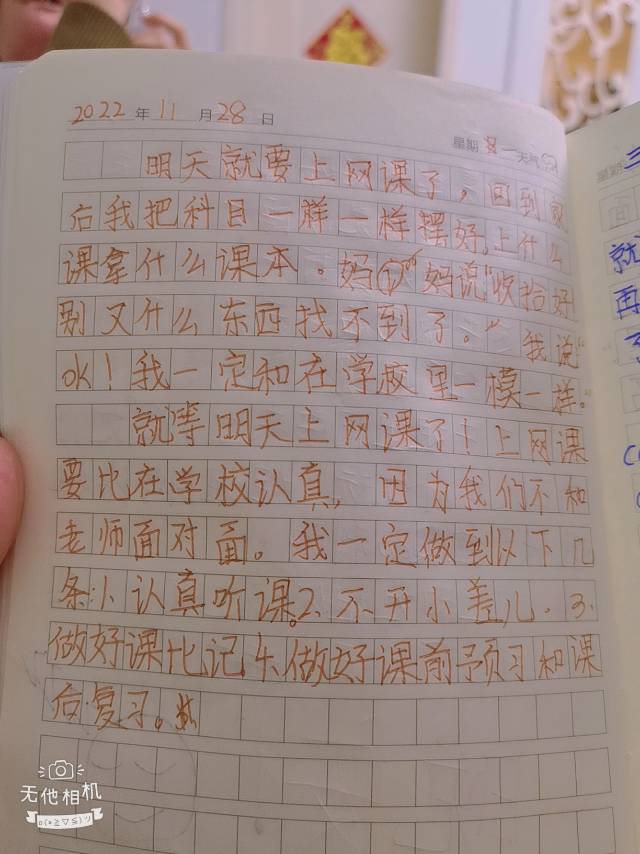 2022年11月28日
星期 一 天气
明天就要上网课了，回到家
后我把科目一样一样摆好，上什么
课拿什么课本。妈 妈说“收拾好
别又什么东西找不到了。”我说“
OK！我一定和在学校里一模一样。”
就等明天上网课了！上网课
要比在学校认真，因为我们不和
老师面对面。我一定做到以下几
条：1、认真听课。2、不开小差儿。3、
做好课比记4、做好课前预习和课
后复习。
星期三
就
再
了
无他相机